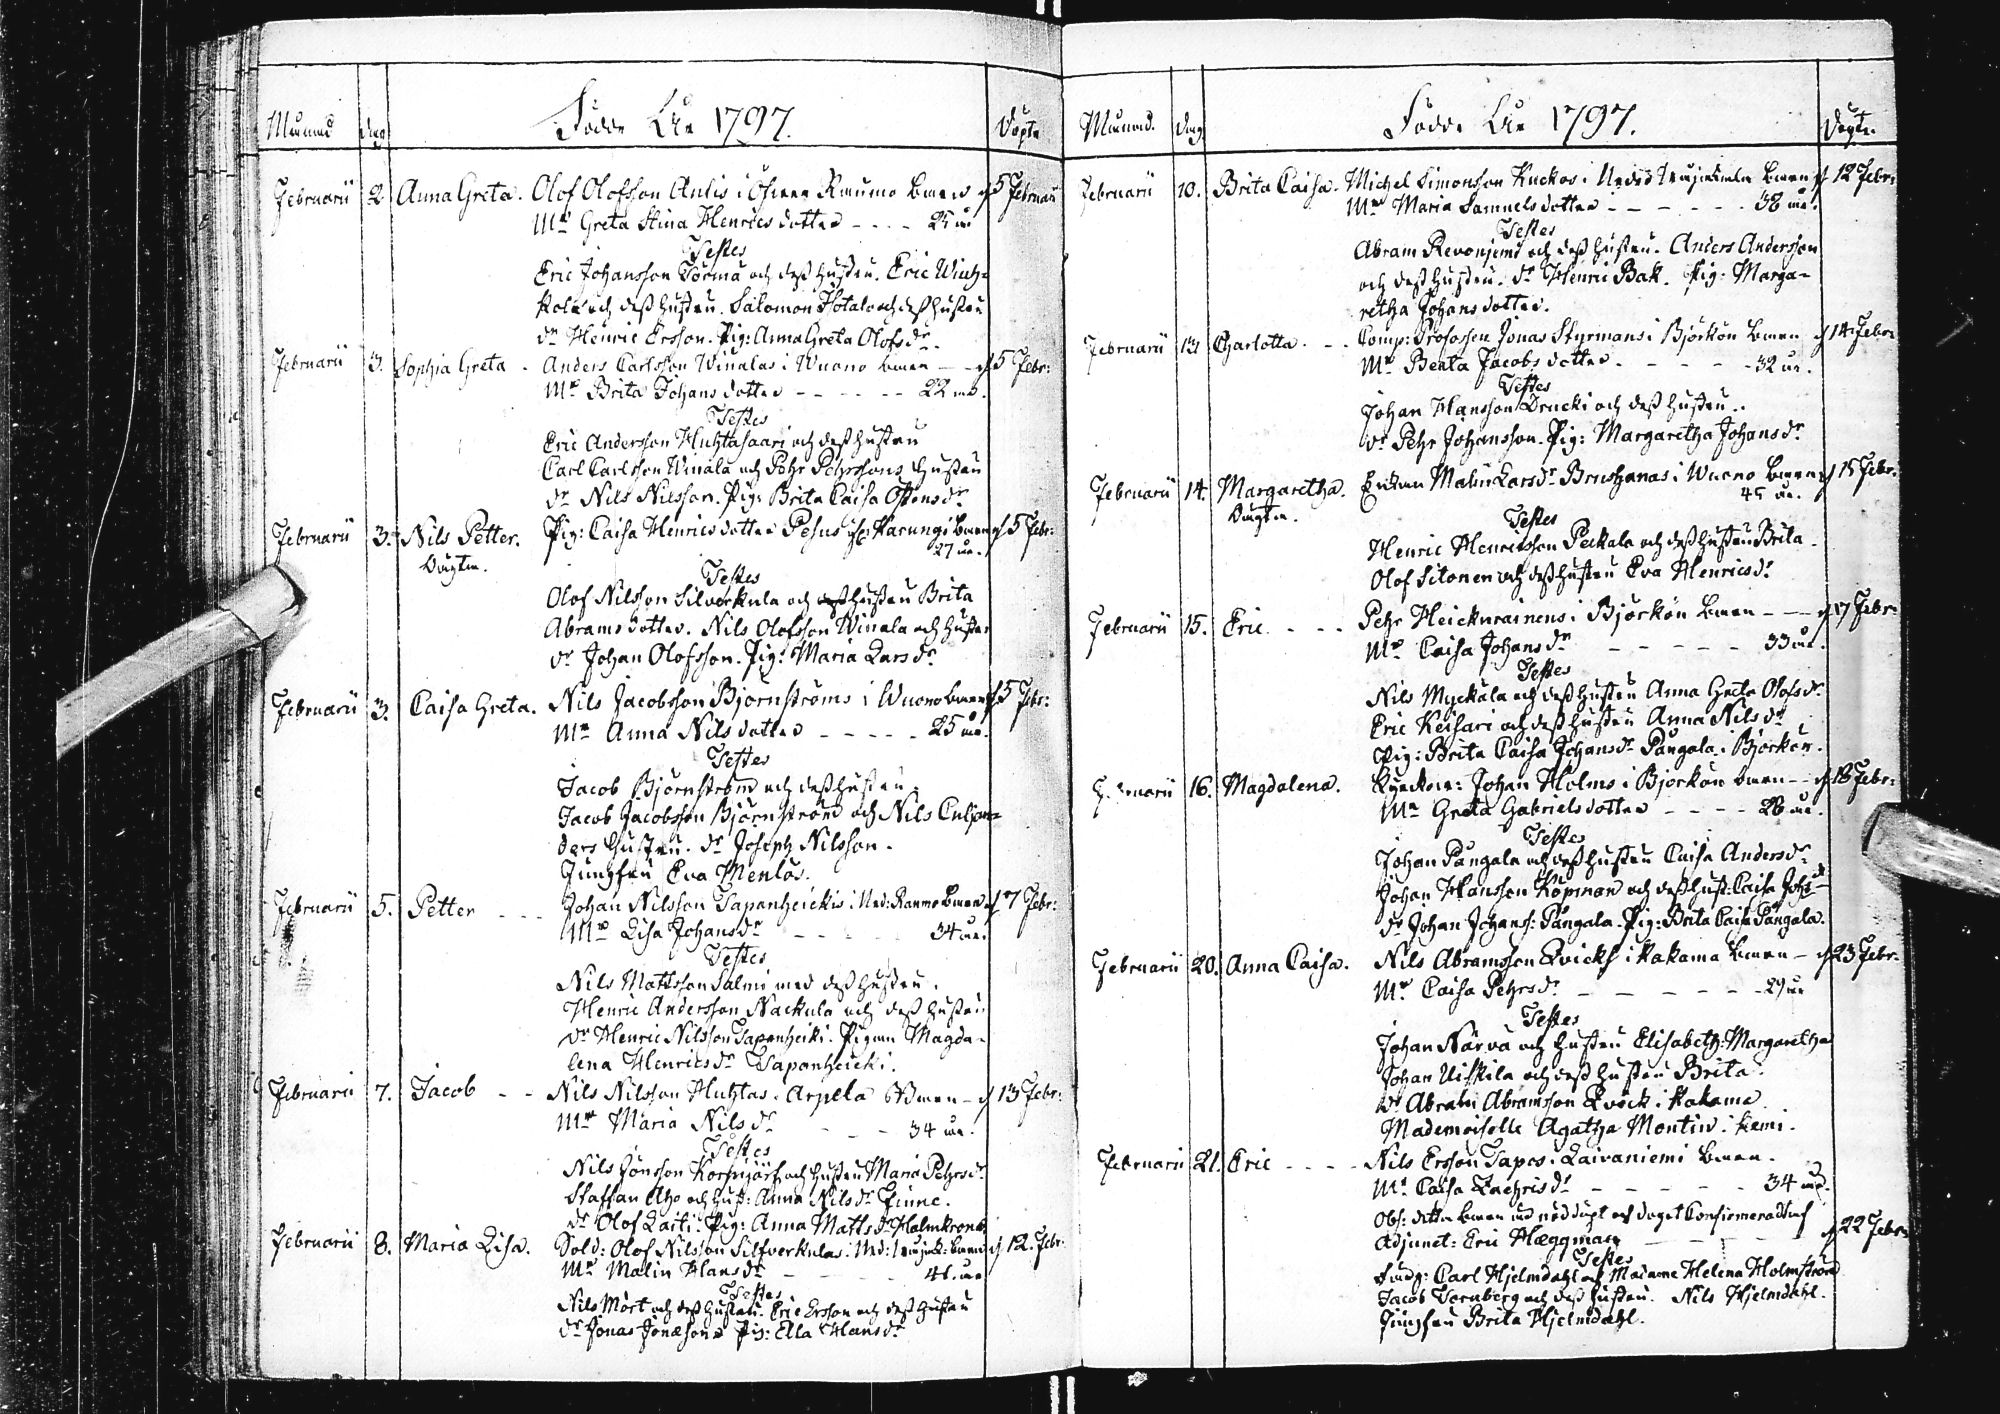 Månad dag Födde År 1797. Döpte
Februarii 2 Anna Greta. Olof Olofsson Anlis i Öfverra Raumo barn d 5 Februarii
Mr Greta Stina Henricsdotter - - - - 25 år
Testes
Eric Johansson Törmä och dess hustru. Eric
och dess hustru. Salomon och dess hustru
Dr Henric Ersson. Pig: Anna Greta Olofs dr.
Februarii 3. Sophia Greta - Anders Carlsson Winalas i Wuono barn - d 5 Febr:
Mr Brita Johans dotter - - - - - - 22 år.
Testes
Eric Andersson Huhtasaari och dess hustru
Carl Carlsson Winala och Pehr Pehrssons hustru
Dr Nils Nilsson. Pig: Brita Caisa dr
Februarii 3. Nils Petter. Pig: Caisa Henricsdotter i Karungi barn d 5 Febr:
Oägta. 27 år.
Testes
Olof Nilsson Silverkula och hustru Brita
Abrams dotter. Nils Olofsson Winala och hustru
Dr Johan Olofsson. Pig: Maria Lars dr
Februarii 3. Caisa Greta. Nils Jacobsson Björnströms i Wuono barn d 5 Febr:
Mr Anna Nilsdotter - - - - - 25 år.
Testes
Jacob Björnström och dess hustru.
Jacob Jacobsson Björnström och Nils
ders hustru. Dr Joseph Nilsson.
Jungfru Eva Menlös.
Februarii 5. Petter - - - Johan Nilsson Tapanheickis i Ned: Raumo barn d 7 Febr:
Mr Lisa Johans dr - - - - - 34 år.
Testes
Nils Mattsson Salmi med dess hustru.
Henric Andersson Nackula och dess hustru
Dr Henric Nilsson Tapanheicki. Pigan Magda-
lena Henrics dr Tapanheicki.
Februarii 7. Jacob - - Nils Nilsson Huhtas i Arpela Barn - d 13 Febr:
Mr Maria Nils dr - - - 34 år.
Testes
Nils Jönsson och hustru Maria Pehrs dr
Staffan Aho och hust: Anna Nils dr Finne.
Dr Olof Laiti. Pig: Anna Matts dr Holmkrona
Februarii 8. Maria Lisa. Sold: Olof Nilsson Silfverkulas i Ned: barn d 12. Febr:
Mr Malin Hans dr - - - - - 41. år
Testes
Nils Mört och dess hustru. Eric Ersson och dess hustru
Dr Jonas Pig: Ella Hans dr
Månad. dag Födde År 1797. Döpte.
Februarii 10. Brita Caisa. Michel Simonsson Kuckos i barn d 12 Febr:
Mr Maria Samuels dotter - - - - - - 38 år.
Testes
Abram och dess hustru. Anders Andersson
och dess hustru. Dr Henric Bak. Pig: Marga-
retha Johansdotter.
Februarii 13 Charlotta. - - Comp: Profossen Jonas Styrmans i Björkön barn d 14 Febr:
Mr Beata Jacobs dotter - - - - - 32 år.
Testes
Johan Hansson Drucki och dess hustru.
Dr Pehr Johansson. Pig: Margaretha Johans dr
Februarii 14. Margaretha. Enkan Malin Lars dr i Wuono barn d 15 Febr:
Oägta. 45 år.
Testes
Henric Henricsson Peckala och dess hustru Brita
Olof Sitonen och dess hustru Eva Henrics dr
Februarii 15. Eric - - - Pehr i Björkön barn - - - d 17 Febr:
Mr Caisa Johans dr - - - - - 33 år.
Testes
Nils Myckälä och dess hustru Anna Greta Olofs dr
Eric Keisari och dess hustru Anna Nils dr
Pig: Brita Caisa Johans dr Pångala i Björkön.
16. Magdalena. Johan Holms i Björkön barn - - d 18 Febr:
Mr Greta Gabrielsdotter - - - - 28 år.
Testes
Johan Pångala och dess hustru Caisa Anders dr
Johan Hansson Köpman och dess hust: Caisa Johs dr
Dr Johan Johans: Pångala. Pig: Brita Caisa Pångala.
Februarii 20. Anna Caisa. Nils Abramsson Qvicks i Kakama barn - d 23 Febr:
Mr Caisa Pehrs dr - - - - - - 29 år
Testes
Johan Närvä och hustru Elisabeth Margaretha
Johan och dess hustru Brita.
Dr Abram Abramsson Qvick i Kakama
Mademoiselle Agatha Montin i Kemi.
Februarii 21. Eric - - - - Nils Ersson i Laivaniemi barn.
Mr Caisa Zachris dr - - - - - - 34 år.
Obs: detta barn är nöddöpt och dopet Confirmerat af
Adjunct: Eric Hæggman - - - - - d 22 Febr:
Testes
Carl Hjelmdahl och Madame Helena Holmström
Jacob Tornberg och dess hustru. Nils Hjelmdahl.
Jungfru Brita Hjelmdahl.